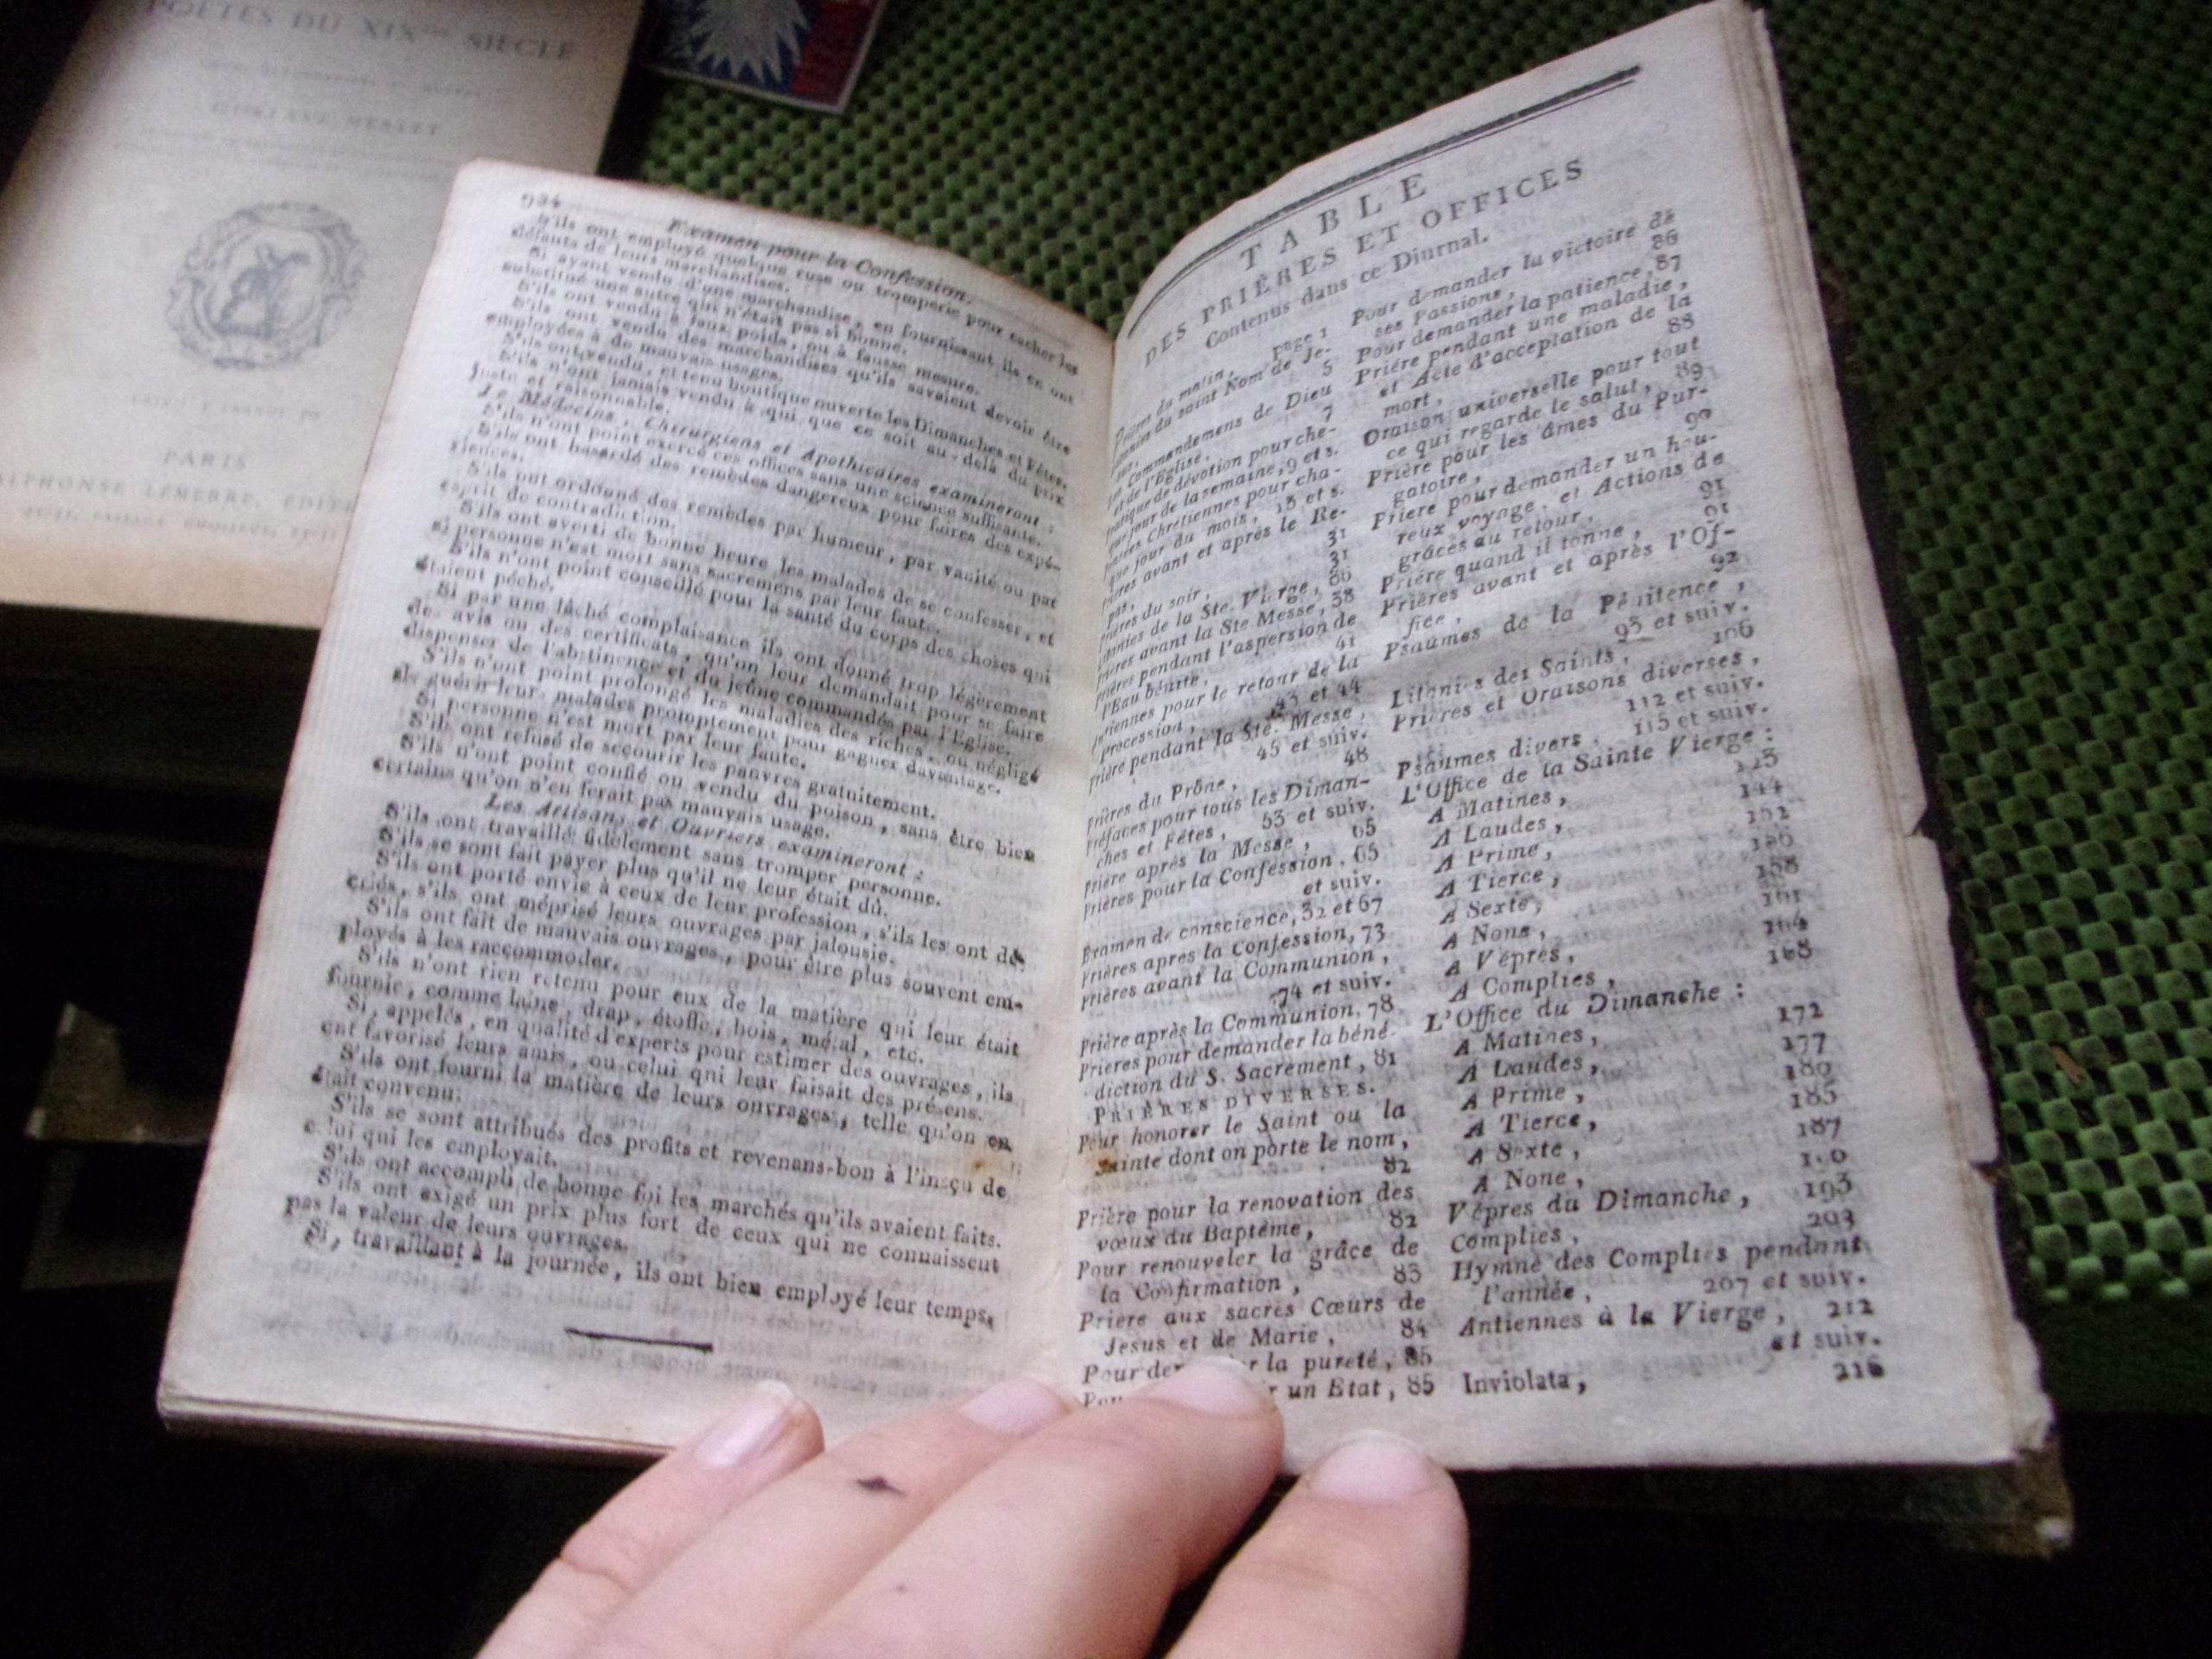 POÈTES DU XIXme SIÈCLE
GUSTAVE MERLET
PARIS
ALPHONSE LEMERRE,
934 Examen pour la Confession.
S'ils ont employé quelque ruse ou tromperie pour cacher les
défauts de leurs marchandises.
Si ayant vendu d'une marchandise, en fournissant ils en ont
substitué une autre qui n'était pas si bonne.
S'ils ont vendu à faux poids, ou à fausse mesure.
S'ils ont vendu des marchandises qu'ils savaient devoir être
employées à de mauvais usages.
S'ils ont vendu, et tenu boutique ouverte les Dimanches et Fêtes.
S'ils n'ont jamais vendu à qui que ce soit au-delà du prix
juste et raisonnable.
Médecins, Chirurgiens et Apothicaires examineront :
S'ils n'ont point exercé ces offices sans une science suffisante.
S'ils ont hasardé des remèdes dangereux pour faires des expé-
riences.
S'ils ont ordonné des remèdes par humeur, par vanité ou par
esprit de contradiction.
S'ils ont averti de bonne heure les malades de se confesser, et
si personne n'est mort sans sacremens par leur faute.
S'ils n'ont point conseillé pour la santé du corps des choses qui
étaient péché.
Si par une lâche complaisance ils ont donné trop légèrement
des avis ou des certificats, qu'on leur demandait pour se faire
dispenser de l'abstinence et du jeûne commandés par l'Eglise.
S'ils n'ont point prolongé les maladies des riches, ou négligé
de guérir leurs malades promptement pour gagner davantage.
Si personne n'est mort par leur faute.
S'ils ont refusé de secourir les pauvres gratuitement.
S'ils n'ont point confié ou vendu du poison, sans être bien
certains qu'on n'en ferait pas mauvais usage.
Les Artisans et Ouvriers examineront :
S'ils ont travaillé fidèlement sans tromper personne.
S'ils se sont fait payer plus qu'il ne leur était dû.
S'ils ont porté envie à ceux de leur profession, s'ils les ont dé-
criés, s'ils ont méprisé leurs ouvrages par jalousie.
S'ils ont fait de mauvais ouvrages, pour être plus souvent em-
ployés à les raccommoder.
S'ils n'ont rien retenu pour eux de la matière qui leur était
fournie, comme laine, drap, étoffe, bois, métal, etc.
Si, appelés, en qualité d'experts pour estimer des ouvrages, ils
ont favorisé leurs amis, ou celui qui leur faisait des présens.
S'ils ont fourni la matière de leurs ouvrages, telle qu'on en
était convenu.
S'ils se sont attribués des profits et revenans-bon à l'insçu de
celui qui les employait.
S'ils ont accompli de bonne foi les marchés qu'ils avaient faits.
S'ils ont exigé un prix plus fort de ceux qui ne connaissent
pas la valeur de leurs ouvrages.
Si, travaillant à la journée, ils ont bien employé leur temps.
TABLE
DES PRIÈRES ET OFFICES
Contenus dans ce Diurnal.
Prières du matin, page 1
Litanies du saint Nom de Jé-
sus, 5
Les Commandemens de Dieu
et de l'Eglise, 7
Pratique de dévotion pour cha-
que jour de la semaine, 9 et s.
Pensées chrétiennes pour cha-
que jour du mois, 13 et s.
Prières avant et après le Re-
pas, 31
Prières du soir, 31
Litanies de la Ste. Vierge, 36
Prières avant la Ste Messe, 38
Prières pendant l'aspersion de
l'Eau bénite, 41
Antiennes pour le retour de la
procession, 43 et 44
Prière pendant la Ste. Messe,
45 et suiv.
Prières du Prône, 48
Préfaces pour tous les Diman-
ches et Fêtes, 53 et suiv.
Prière après la Messe, 65
Prières pour la Confession, 65
et suiv.
Examen de conscience, 32 et 67
Prières après la Confession, 73
Prières avant la Communion,
74 et suiv.
Prière après la Communion, 78
Prières pour demander la béné-
diction du S. Sacrement, 81
PRIÈRES DIVERSES.
Pour honorer le Saint ou la
Sainte dont on porte le nom,
82
Prière pour la renovation des
vœux du Baptême, 82
Pour renouveler la grâce de
la Confirmation, 83
Prière aux sacrés Cœurs de
Jesus et de Marie, 84
Pour la pureté, 85
un Etat, 85
Pour demander la victoire de
ses Passions, 86
Pour demander la patience, 87
Prière pendant une maladie,
et Acte d'acceptation de la
mort, 88
Oraison universelle pour tout
ce qui regarde le salut, 89
Prière pour les âmes du Pur-
gatoire, 90
Prière pour demander un heu-
reux voyage, et Actions de
grâces au retour, 91
Prière quand il tonne, 91
Prières avant et après l'Of-
fice, 92
Psaumes de la Pénitence,
93 et suiv.
Litanies des Saints, 106
Prières et Oraisons diverses,
112 et suiv.
Psaumes divers, 115 et suiv.
L'Office de la Sainte Vierge :
A Matines, 123
A Laudes, 144
A Prime, 152
A Tierce, 156
A Sexte, 158
A None, 161
A Vêpres, 164
A Complies, 168
L'Office du Dimanche :
A Matines, 172
A Laudes, 177
A Prime, 180
A Tierce, 185
A Sexte, 187
A None, 190
Vêpres du Dimanche, 193
Complies, 203
Hymne des Complies pendant
l'année, 207 et suiv.
Antiennes à la Vierge, 212
et suiv.
Inviolata, 216